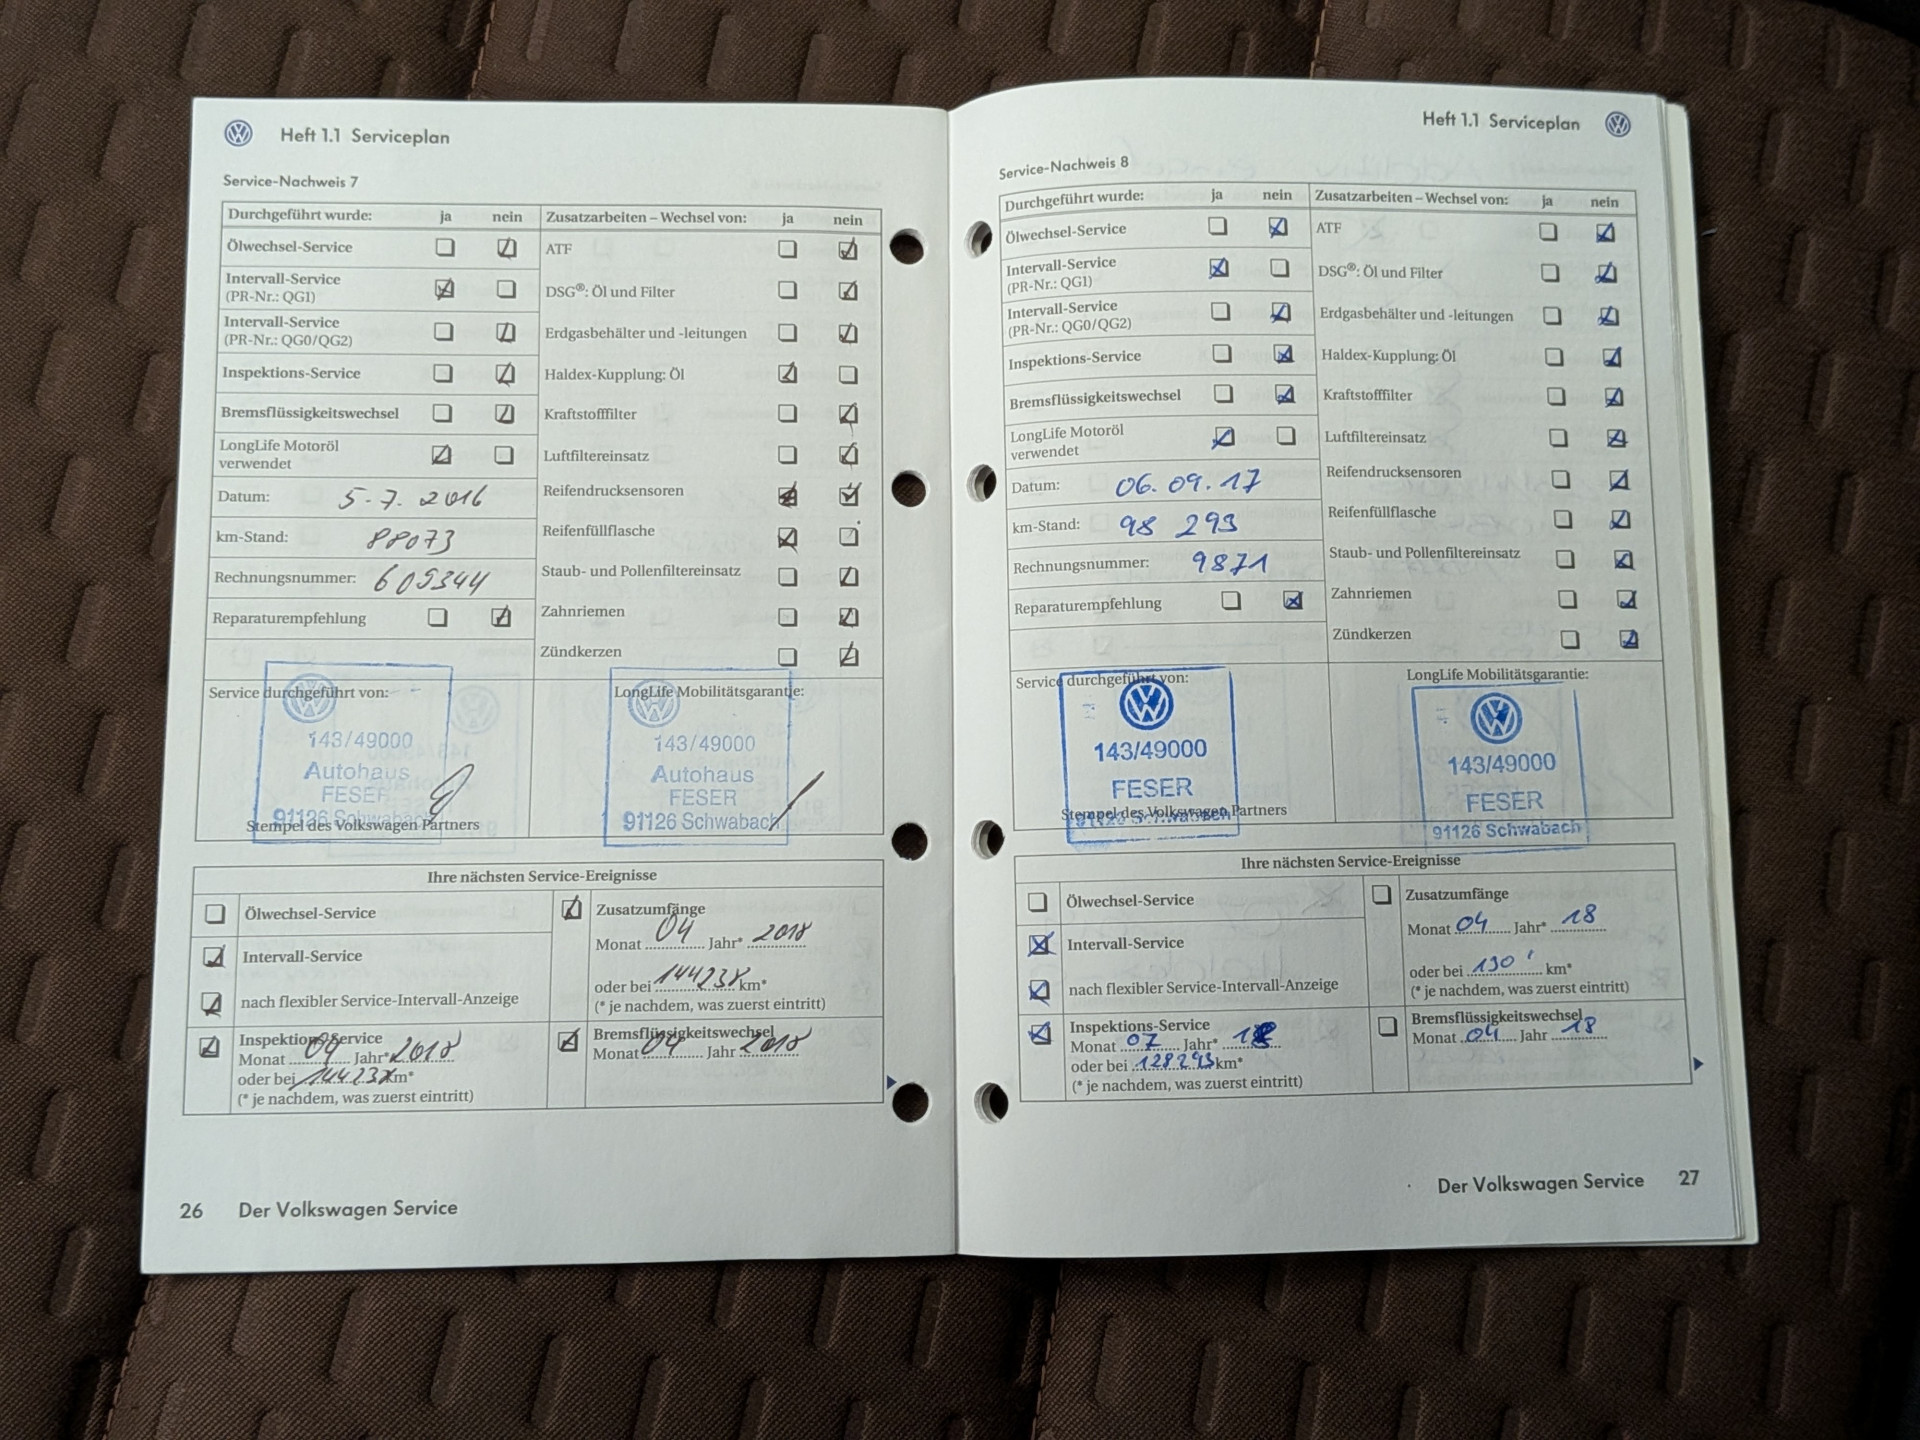 Heft 1.1 Serviceplan
Service-Nachweis 7
Durchgeführt wurde: ja nein
Ölwechsel-Service
Intervall-Service
(PR-Nr.: QG1)
Intervall-Service
(PR-Nr.: QG0/QG2)
Inspektions-Service
Bremsflüssigkeitswechsel
LongLife Motoröl
verwendet
Datum: 5-7.2016
km-Stand: 88073
Rechnungsnummer: 605344
Reparaturempfehlung
Zusatzarbeiten – Wechsel von: ja nein
ATF
DSG®: Öl und Filter
Erdgasbehälter und -leitungen
Haldex-Kupplung: Öl
Kraftstofffilter
Luftfiltereinsatz
Reifendrucksensoren
Reifenfüllflasche
Staub- und Pollenfiltereinsatz
Zahnriemen
Zündkerzen
Service durchgeführt von:
143/49000
Autohaus
FESER
91126 Schwabach
Stempel des Volkswagen Partners
LongLife Mobilitätsgarantie:
143/49000
Autohaus
FESER
91126 Schwabach
Ihre nächsten Service-Ereignisse
Ölwechsel-Service
Intervall-Service
nach flexibler Service-Intervall-Anzeige
Inspektions-Service
Monat 04 Jahr* 2018
oder bei 144238 km*
(* je nachdem, was zuerst eintritt)
Zusatzumfänge
Monat 04 Jahr* 2018
oder bei 144238 km*
(* je nachdem, was zuerst eintritt)
Bremsflüssigkeitswechsel
Monat 04 Jahr 2018
26 Der Volkswagen Service
Heft 1.1 Serviceplan
Service-Nachweis 8
Durchgeführt wurde: ja nein
Ölwechsel-Service
Intervall-Service
(PR-Nr.: QG1)
Intervall-Service
(PR-Nr.: QG0/QG2)
Inspektions-Service
Bremsflüssigkeitswechsel
LongLife Motoröl
verwendet
Datum: 06.09.17
km-Stand: 98 293
Rechnungsnummer: 9871
Reparaturempfehlung
Zusatzarbeiten – Wechsel von: ja nein
ATF
DSG®: Öl und Filter
Erdgasbehälter und -leitungen
Haldex-Kupplung: Öl
Kraftstofffilter
Luftfiltereinsatz
Reifendrucksensoren
Reifenfüllflasche
Staub- und Pollenfiltereinsatz
Zahnriemen
Zündkerzen
Service durchgeführt von:
143/49000
FESER
91126 Schwabach
Stempel des Volkswagen Partners
LongLife Mobilitätsgarantie:
143/49000
FESER
91126 Schwabach
Ihre nächsten Service-Ereignisse
Ölwechsel-Service
Intervall-Service
nach flexibler Service-Intervall-Anzeige
Inspektions-Service
Monat 07 Jahr* 18
oder bei 128293 km*
(* je nachdem, was zuerst eintritt)
Zusatzumfänge
Monat 04 Jahr* 18
oder bei 130' km*
(* je nachdem, was zuerst eintritt)
Bremsflüssigkeitswechsel
Monat 04 Jahr 18
Der Volkswagen Service 27